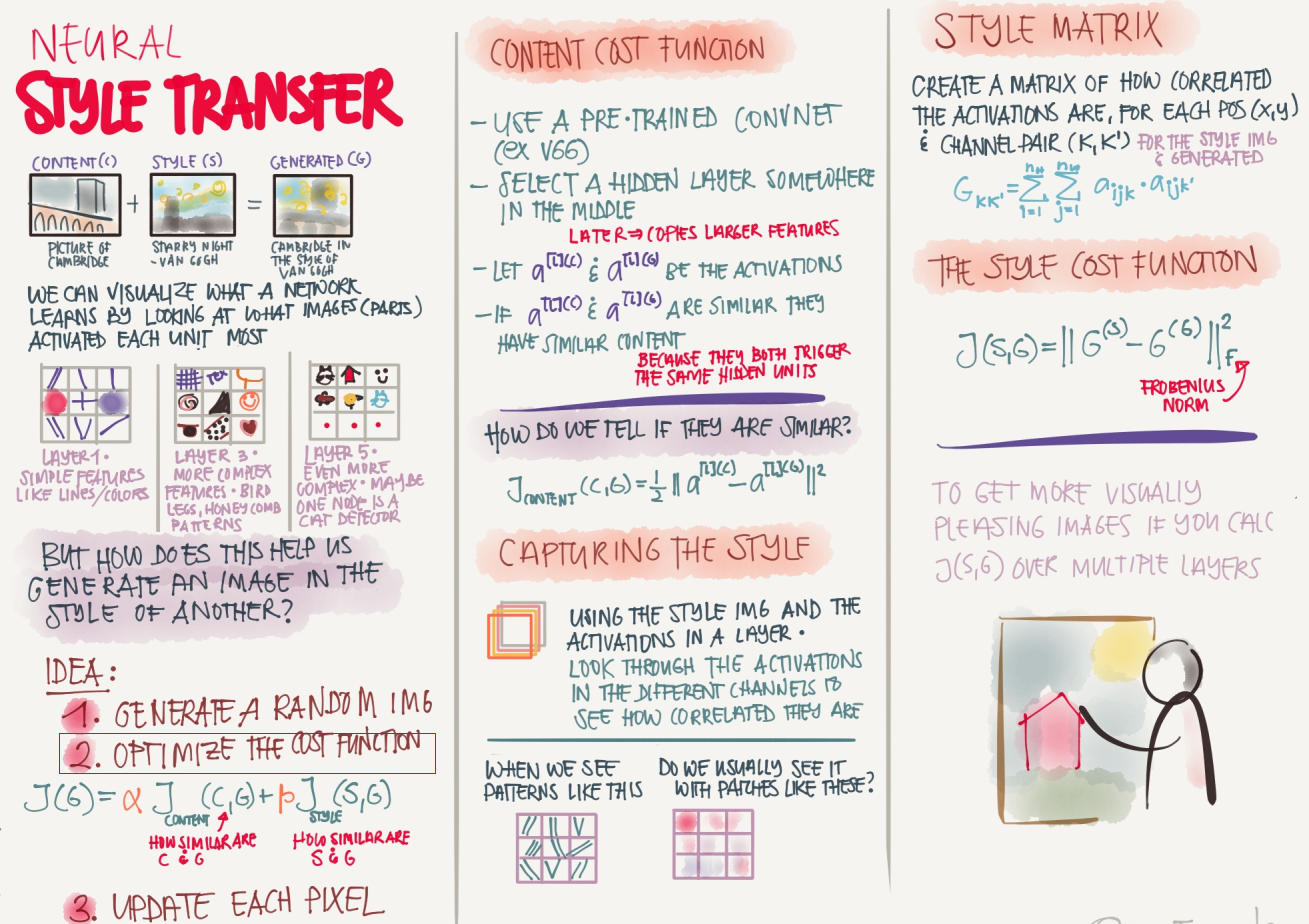 NEURAL
STYLE TRANSFER
CONTENT (C)
STYLE (S)
GENERATED (G)
+
=
PICTURE OF
CAMBRIDGE
STARRY NIGHT
- VAN GOGH
CAMBRIDGE IN
THE STYLE OF
VAN GOGH
WE CAN VISUALIZE WHAT A NETWORK
LEARNS BY LOOKING AT WHAT IMAGES (PARTS)
ACTIVATED EACH UNIT MOST
TEX
LAYER 1 •
SIMPLE FEATURES
LIKE LINES/COLORS
LAYER 3 •
MORE COMPLEX
FEATURES • BIRD
LEGS, HONEYCOMB
PATTERNS
LAYER 5 •
EVEN MORE
COMPLEX • MAYBE
ONE NODE IS A
CAT DETECTOR
BUT HOW DOES THIS HELP US
GENERATE AN IMAGE IN THE
STYLE OF ANOTHER?
IDEA:
1. GENERATE A RANDOM IMG
2. OPTIMIZE THE COST FUNCTION
J(G) = α J CONTENT (C,G) + β J STYLE (S,G)
HOW SIMILAR ARE
C & G
HOW SIMILAR ARE
S & G
3. UPDATE EACH PIXEL
CONTENT COST FUNCTION
- USE A PRE-TRAINED CONVNET
(EX VGG)
- SELECT A HIDDEN LAYER SOMEWHERE
IN THE MIDDLE
LATER ⇒ COPIES LARGER FEATURES
- LET a^[l](C) & a^[l](G) BE THE ACTIVATIONS
- IF a^[l](C) & a^[l](G) ARE SIMILAR THEY
HAVE SIMILAR CONTENT
BECAUSE THEY BOTH TRIGGER
THE SAME HIDDEN UNITS
HOW DO WE TELL IF THEY ARE SIMILAR?
J CONTENT (C,G) = 1/2 || a^[l](C) - a^[l](G) ||²
CAPTURING THE STYLE
USING THE STYLE IMG AND THE
ACTIVATIONS IN A LAYER •
LOOK THROUGH THE ACTIVATIONS
IN THE DIFFERENT CHANNELS TO
SEE HOW CORRELATED THEY ARE
WHEN WE SEE
PATTERNS LIKE THIS
DO WE USUALLY SEE IT
WITH PATCHES LIKE THESE?
STYLE MATRIX
CREATE A MATRIX OF HOW CORRELATED
THE ACTIVATIONS ARE, FOR EACH POS (X,Y)
& CHANNEL PAIR (K,K') FOR THE STYLE IMG
& GENERATED
G_KK' = Σ_{i=1}^{n_H} Σ_{j=1}^{n_W} a_ijk · a_ijk'
THE STYLE COST FUNCTION
J(S,G) = || G^(S) - G^(G) ||²_F
FROBENIUS
NORM
TO GET MORE VISUALLY
PLEASING IMAGES IF YOU CALC
J(S,G) OVER MULTIPLE LAYERS